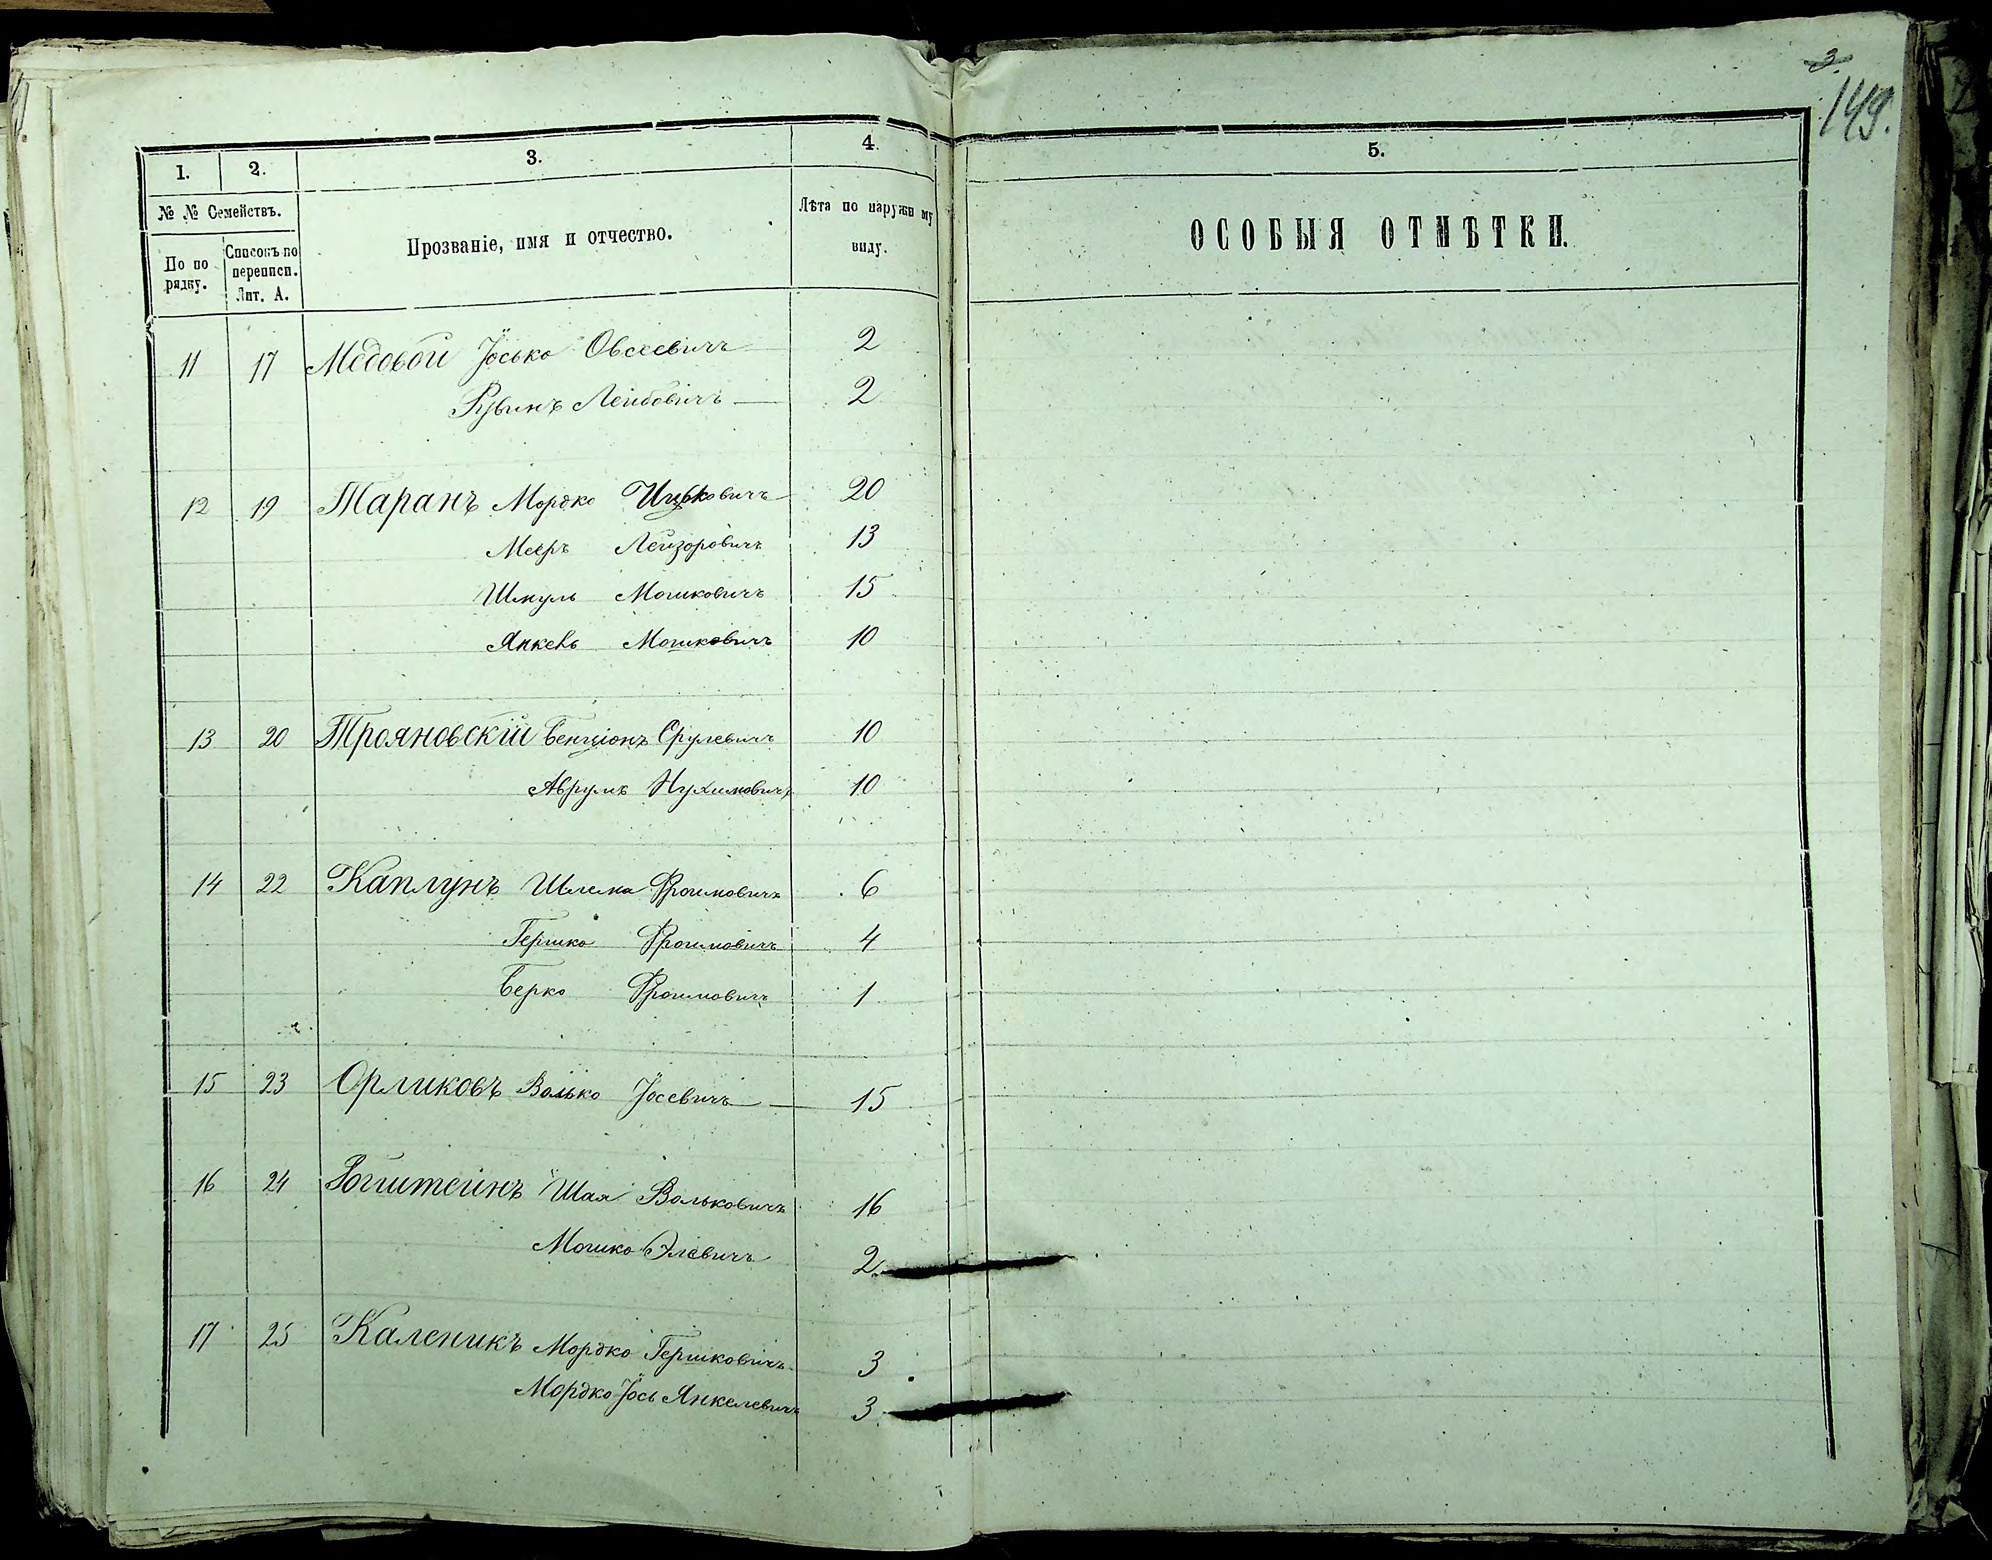 3
149.
1. 2. 3. 4 5.
№ № Семействъ. Прозваніе, имя и отчество. Лѣта по наружн му виду. ОСОБЫЯ ОТМѢТКИ.
По по рядку. Списокъ по переписи. Лит. А.
11 17 Медовой Іосько Овсеевичъ 2
Рувинъ Лейбовичъ 2
12 19 Таранъ Мордко Ицковичъ 20
Мееръ Лейзоровичъ 13
Шмуль Мошковичъ 15
Янкель Мошковичъ 10
13 20 Трояновскій Бенціонъ Срулевичъ 10
Аврумъ Нухимовичъ 10
14 22 Каплунъ Шлема Фроимовичъ 6
Гершко Фроимовичъ 4
Берко Фроимовичъ 1
15 23 Орликовъ Волько Іосевичъ 15
16 24 Шая Вольковичъ 16
Мошко Элевичъ 2
17 25 Каленикъ Мордко Гершковичъ 3
Мордко Іось Янкелевичъ 3